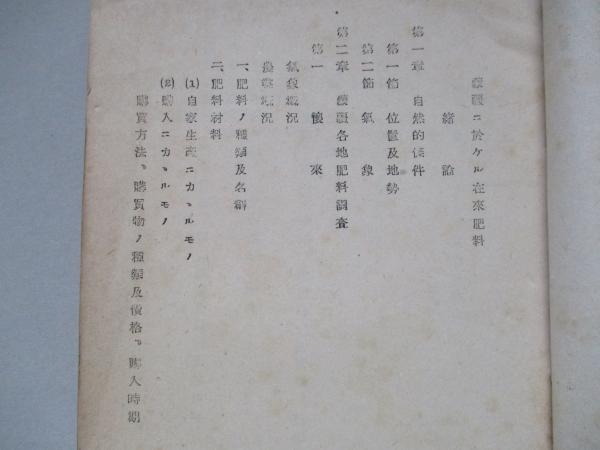 蒙疆ニ於ケル在來肥料
緒論
第一章 自然的條件
第一節 位置及地勢
第二節 氣象
第二章 蒙疆各地肥料調査
第一 懷來
氣象概況
農業概況
一、肥料ノ種類及名稱
二、肥料材料
(1)自家生産ニカヽルモノ
(2)購入ニカヽルモノ
購買方法、購買物ノ種類及價格、購入時期